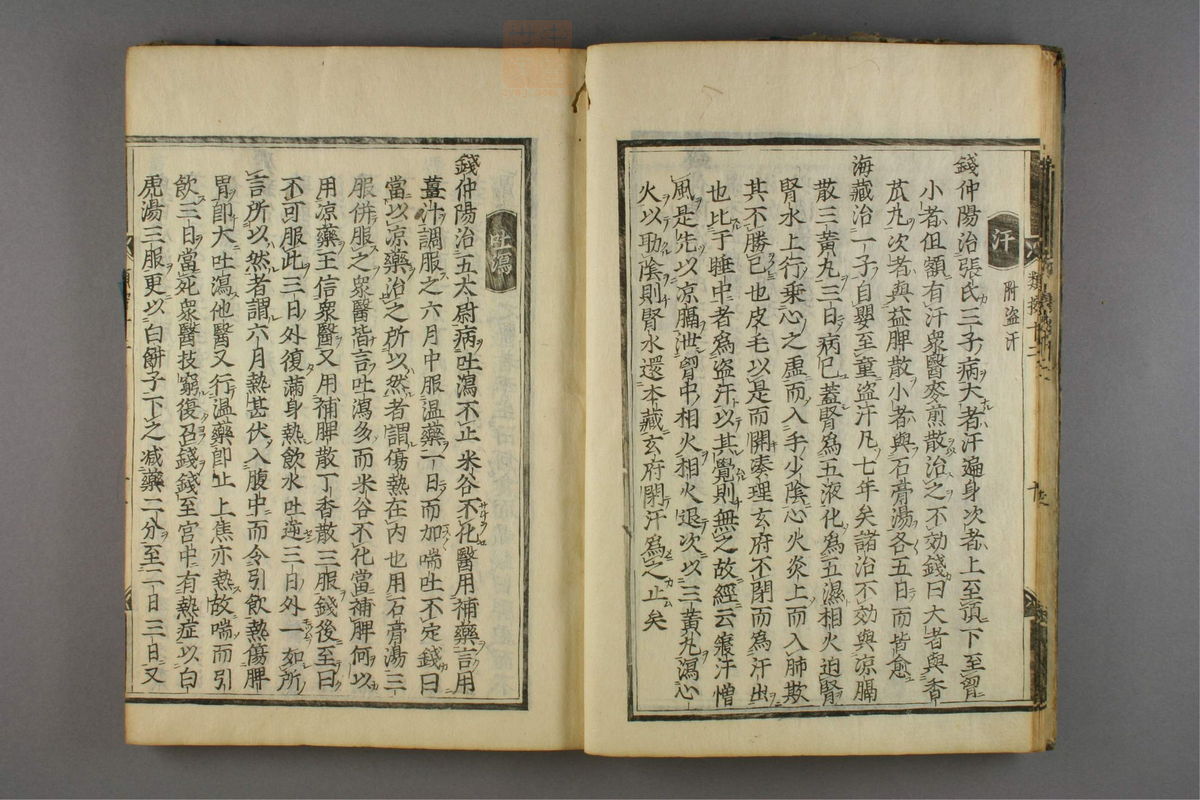 汗 附盜汗
錢仲陽治張氏三子病大者汗遍身次者上至頂下至胷
小者但額有汗衆醫麥煎散治之不効錢曰大者與香
苽丸次者與益脾散小者與石膏湯各五日而皆愈
海藏治一子自嬰至童盜汗凡七年矣諸治不効與凉膈
散三黃丸三日病已蓋腎爲五液化爲五濕相火迫腎
腎水上行乗心之虛而入手少陰心火炎上而入肺欺
其不勝已也皮毛以是而開湊理玄府不閉而爲汗出
也比于睡中者爲盜汗以其覺則無之故經云寢汗憎
風是先以凉膈泄胷中相火相火退次以三黃丸瀉心
火以助陰則腎水還本藏玄府閉汗爲之止矣
吐瀉
錢仲陽治五太尉病吐瀉不止米谷不化醫用補藥言用
薑汁調服之六月中服温藥一日而加喘吐不定錢曰
當以凉藥治之所以然者謂傷熱在内也用石膏湯三
服併服之衆醫皆言吐瀉多而米谷不化當補脾何以
用凉藥王信衆醫又用補脾散丁香散三服錢後至曰
不可服此三日外復滿身熱飲水吐逆三日外一如所
言所以然者謂六月熱甚伏入腹中而令引飲熱傷脾
胃即大吐瀉他醫又行温藥即止上焦亦熱故喘而引
飲三日當死衆醫技窮復召錢錢至宮中有熱症以白
虎湯三服更以白餅子下之减藥二分至二日三日又